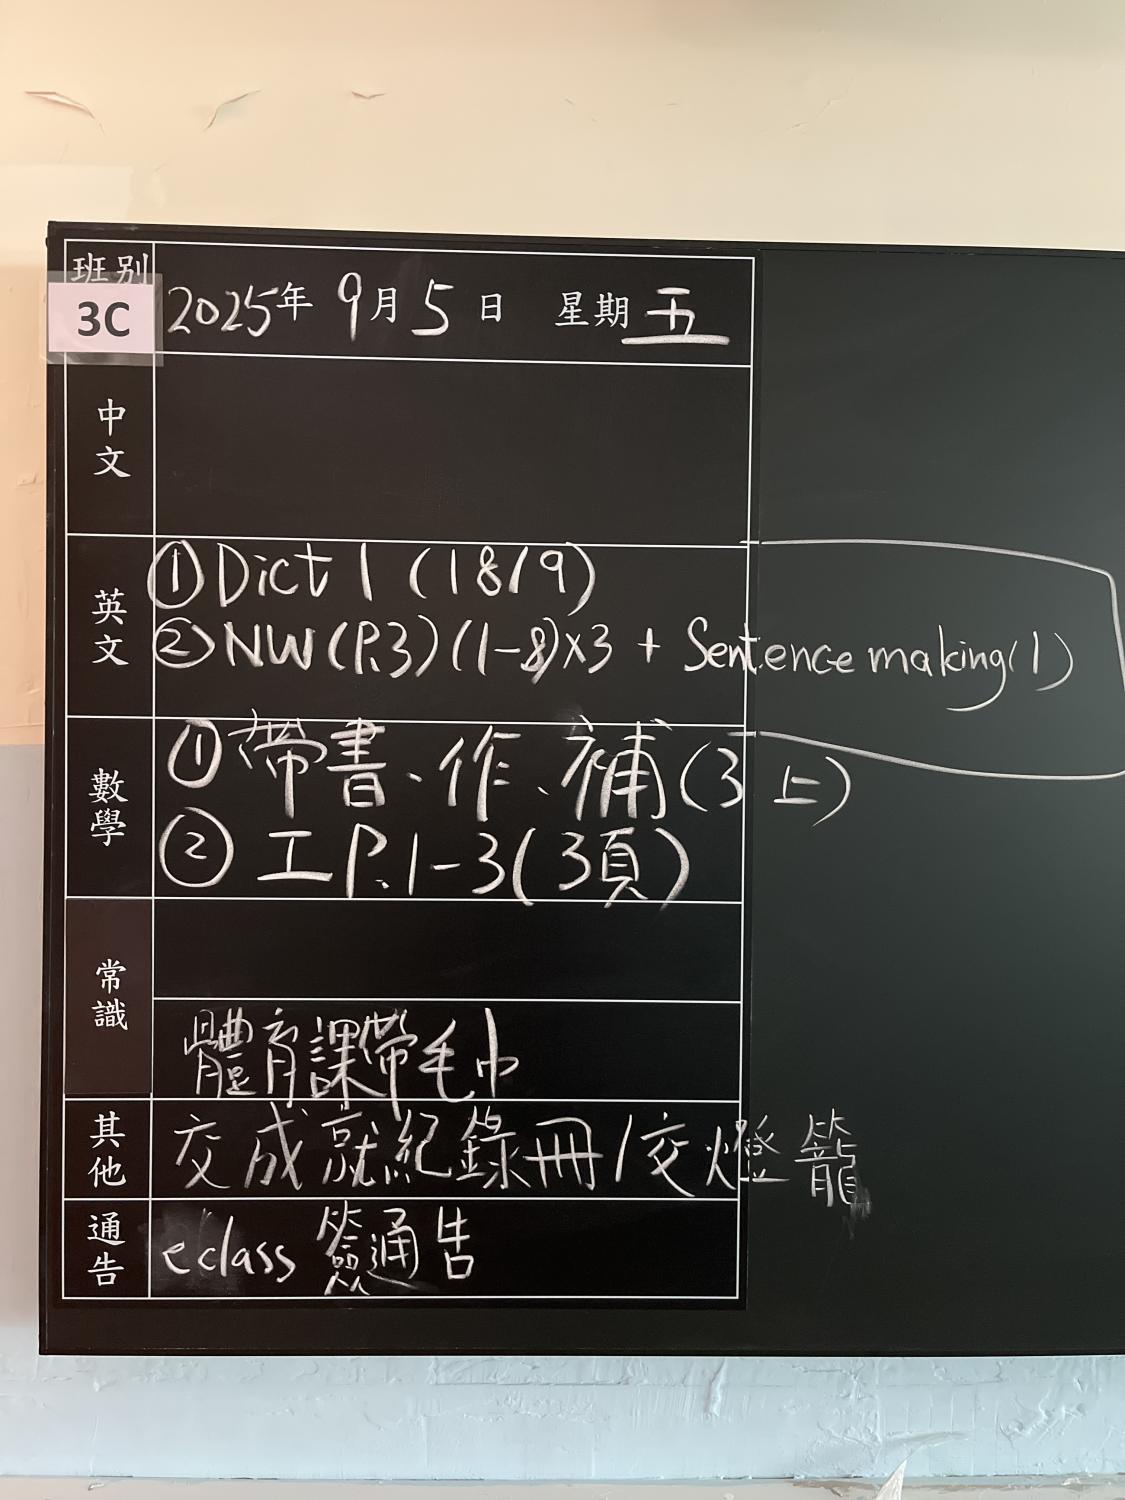 班別
3C
2025年 9月5日 星期五
中文
英文
①Dict 1 (18/9)
②NW(P.3)(1-8)×3 + Sentence making(1)
數學
①帶書、作、補(3上)
②工P.1-3(3頁)
常識
體育課帶毛巾
其他
交成就紀錄冊/交燈籠
通告
eclass 簽通告